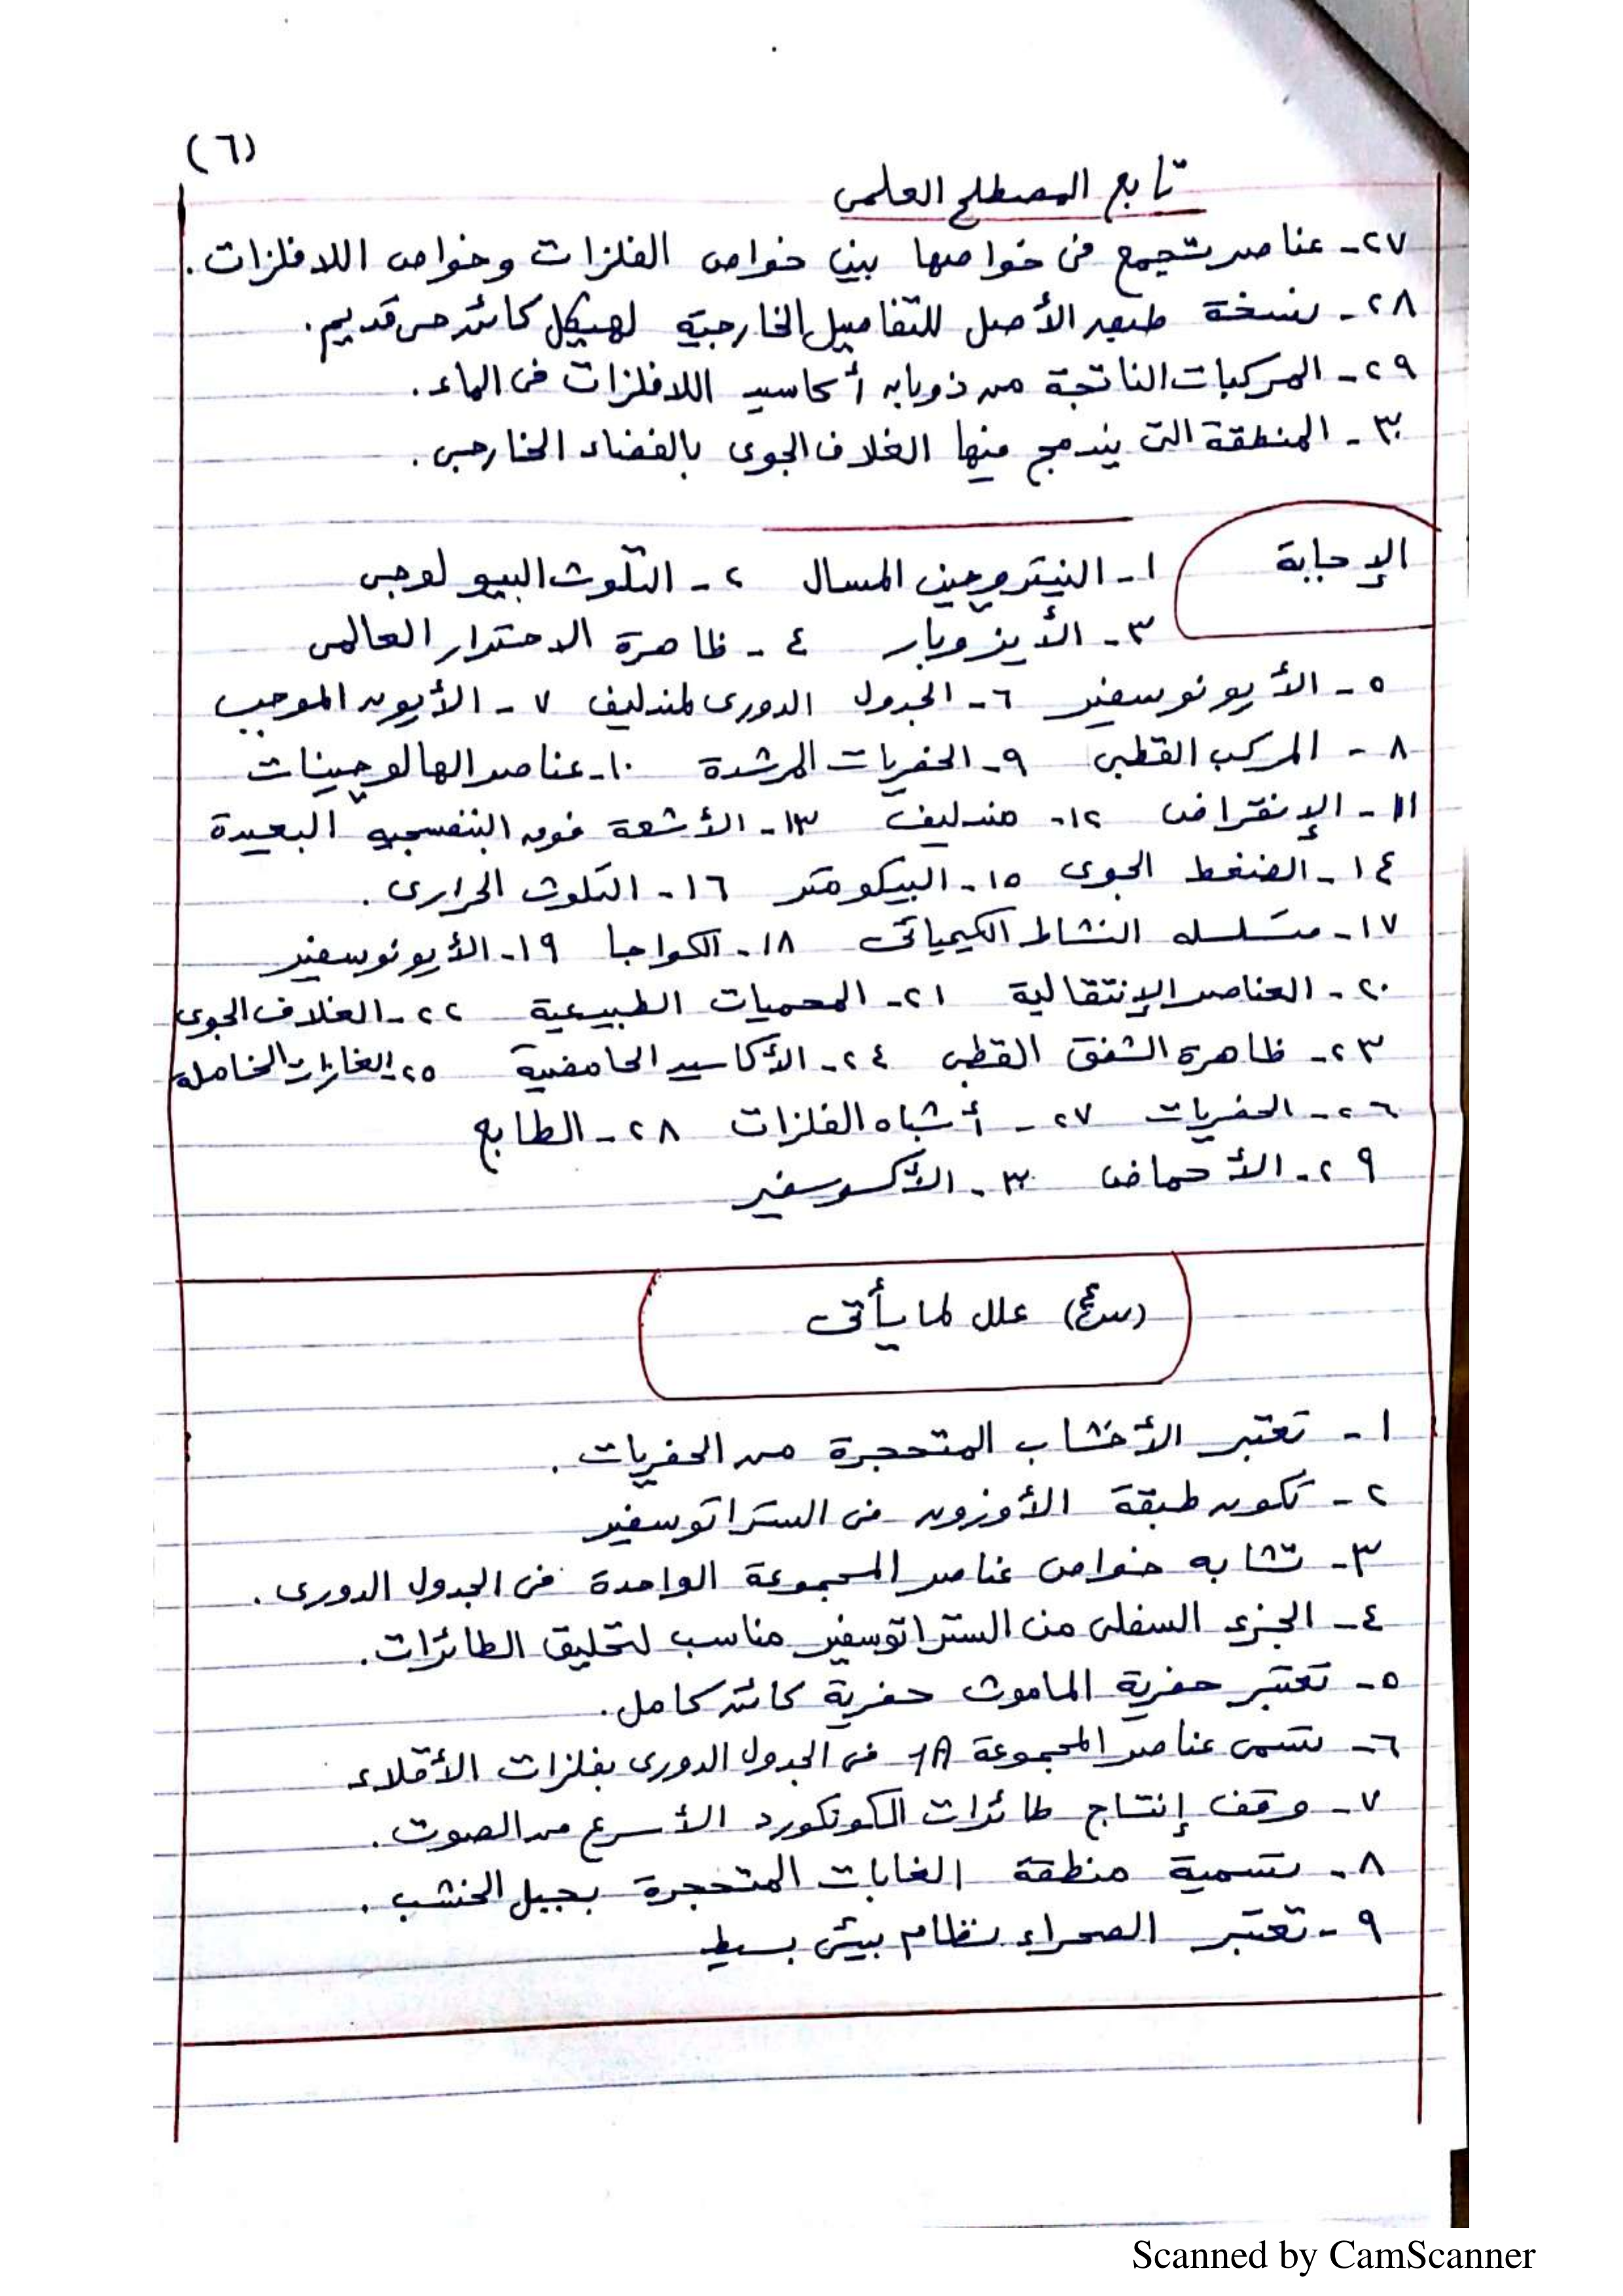 (٦)
تابع المصطلح العلمى
٢٧- عناصر تجمع فى خواصها بين خواص الفلزات وخواص اللافلزات.
٢٨- نسخة طبق الأصل للتفاصيل الخارجية لهيكل كائن حى قديم.
٢٩- المركبات الناتجة من ذوبان أكاسيد اللافلزات فى الماء.
٣٠- المنطقة التى يندمج فيها الغلاف الجوى بالفضاء الخارجى.
الإجابة
١- النيتروجين المسال ٢- التلوث البيولوجى
٣- الأيزوبار ٤- ظاهرة الاحترار العالمى
٥- الأيونوسفير ٦- الجدول الدورى لمندليف ٧- الأيون الموجب
٨- المركب القطبى ٩- الحفريات المرشدة ١٠- عناصر الهالوجينات
١١- الإنقراض ١٢- مندليف ١٣- الأشعة فوق البنفسجية البعيدة
١٤- الضغط الجوى ١٥- البيكومتر ١٦- التلوث الحرارى.
١٧- متسلسلة النشاط الكيميائى ١٨- الكواجا ١٩- الأيونوسفير
٢٠- العناصر الإنتقالية ٢١- المحميات الطبيعية ٢٢- الغلاف الجوى
٢٣- ظاهرة الشفق القطبى ٢٤- الأكاسيد الحامضية ٢٥- الغازات الخاملة
٢٦- الحفريات ٢٧- أشباه الفلزات ٢٨- الطابع
٢٩- الأحماض ٣٠- الأكسوسفير
(س٤) علل لما يأتى
١- تعتبر الأخشاب المتحجرة من الحفريات.
٢- تكون طبقة الأوزون فى الستراتوسفير
٣- تشابه خواص عناصر المجموعة الواحدة فى الجدول الدورى.
٤- الجزء السفلى من الستراتوسفير مناسب لتحليق الطائرات.
٥- تعتبر حفرية الماموث حفرية كائن كامل.
٦- تسمى عناصر المجموعة 1A فى الجدول الدورى بفلزات الأقلاء
٧- وقف إنتاج طائرات الكونكورد الأسرع من الصوت.
٨- تسمية منطقة الغابات المتحجرة بجبل الخشب.
٩- تعتبر الصحراء نظام بيئى بسيط
Scanned by CamScanner